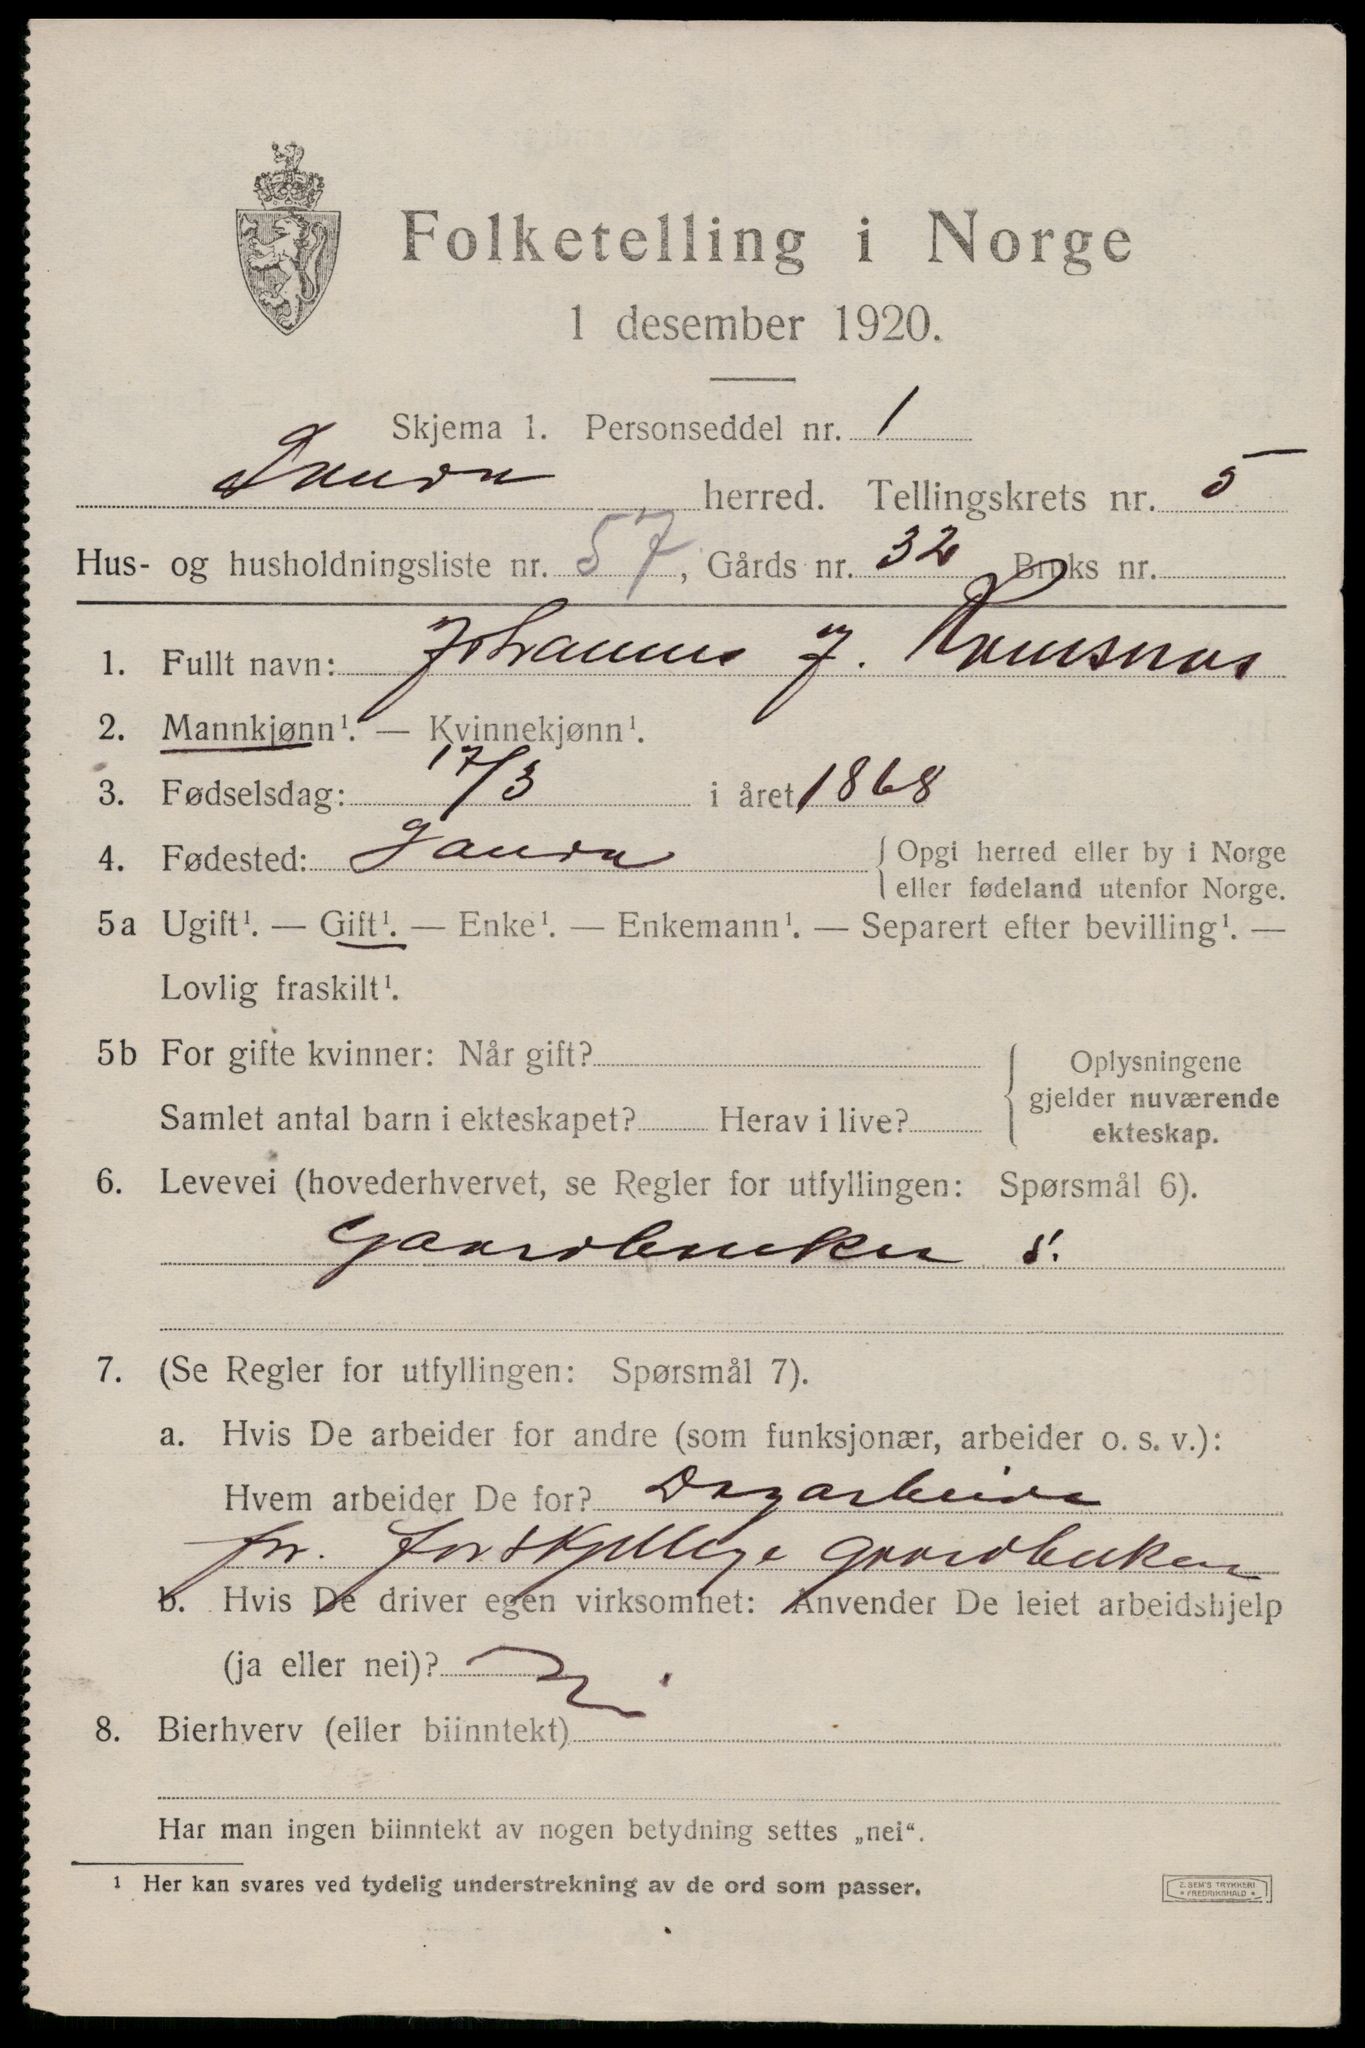 Folketelling i Norge
1 desember 1920.
Skjema 1. Personseddel nr. 1
Sauda herred. Tellingskrets nr. 5
Hus- og husholdningsliste nr. 57, Gårds nr. 32 Bruks nr.
1. Fullt navn: Johannes J.
2. Mannkjønn¹. — Kvinnekjønn¹.
3. Fødselsdag: 17/3 i året 1868
4. Fødested: Sauda { Opgi herred eller by i Norge
eller fødeland utenfor Norge.
5a Ugift¹. — Gift¹. — Enke¹. — Enkemann¹. — Separert efter bevilling¹. —
Lovlig fraskilt¹.
5b For gifte kvinner: Når gift?
Samlet antal barn i ekteskapet? Herav i live?
{ Oplysningene
gjelder nuværende
ekteskap.
6. Levevei (hovederhvervet, se Regler for utfyllingen: Spørsmål 6).
Gaardbruker s.
7. (Se Regler for utfyllingen: Spørsmål 7).
a. Hvis De arbeider for andre (som funksjonær, arbeider o. s. v.):
Hvem arbeider De for? Dagarbeide
for. forskjellige gaardbruker
b. Hvis De driver egen virksomhet: Anvender De leiet arbeidshjelp
(ja eller nei)? nei
8. Bierhverv (eller biinntekt)
Har man ingen biinntekt av nogen betydning settes „nei“.
¹ Her kan svares ved tydelig understrekning av de ord som passer.
Z. SEM'S TRYKKERI
* FREDRIKSHALD *